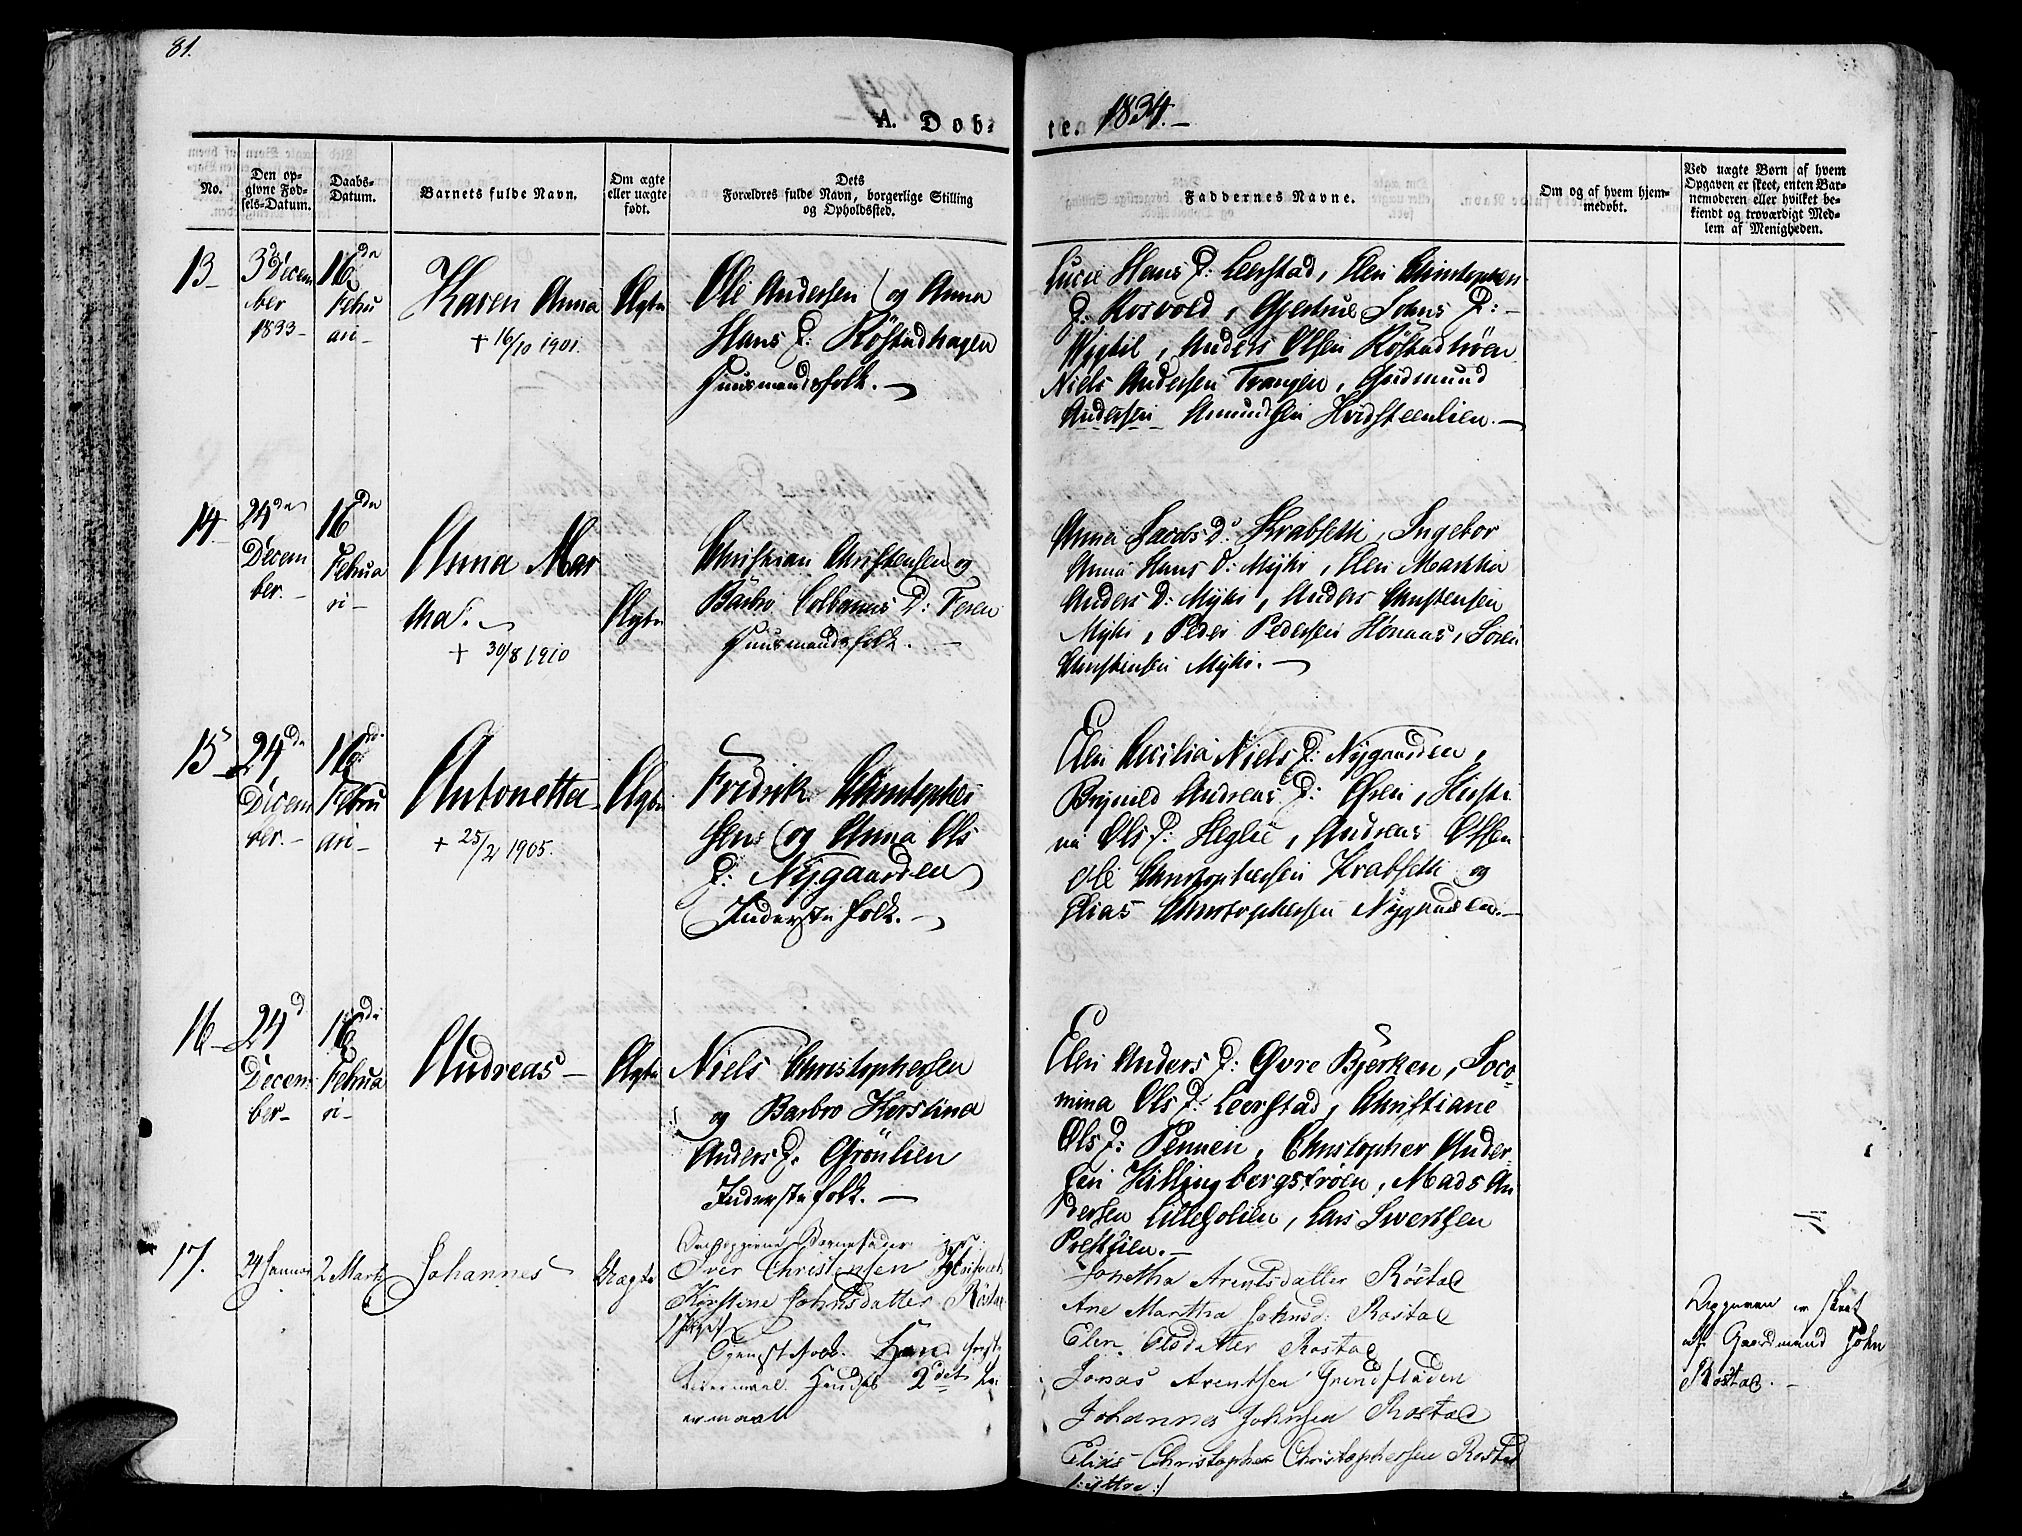 81.
A. Døb-
te. 1834.-
No.
Den op-
givne Fød-
sels-Datum.
Daabs-
Datum.
Barnets fulde Navn.
Om ægte
eller uægte
født.
Dets
Forældres fulde Navn, borgerlige Stilling
og Opholdssted.
Faddernes Navne.
Om og af hvem hjem-
medøbt.
Ved uægte Børn af hvem
Opgaven er skeet, enten Bar-
nemoderen eller hvilket be-
kiendt og troværdigt Med-
lem af Menigheden.
13-
3de Decem
ber
1833-
16de
Febru
ari-
Karen Anna
+ 16/10 1901.
Ægte
Ole Andersen og Anna
Hans D: Röstadhagen
Huusmandsfolk.-
Lucie Hans D: Leerstad, Elen Christophers
D: Rosvold, Gjertrue Johns D:-
Wigtil, Anders Olsen Röstadtröen
Niels Andersen Trangen, Gudmund
Andersen Amundsen Hvidsteenlien.-
14-
24de
Decem
ber.-
16de
Februa
ri-
Anna Mar
tha.
+ 30/8 1910
Ægte
Christian Christensen og
Barbro Colbanus D: Feren
Huusmandsfolk.-
Anna Jacobs D: Krabsetti, Ingebor
Anna Hans D: Myhr, Elen Martha
Anders D: Myhr, Anders Christensen
Myhr, Peder Pedersen Hønaas, Søren
Christensen Myhr.-
15
24de
Decem
ber.-
16de
Febru
ari-
Antonetta
+ 25/2 1905.
Ægte
Fredrik Christopher
sens og Anna Ols
D: Nygaarden
Inderstefolk.-
Elen Cecilia Niels D: Nygaarden,
Brynild Andreas D: Øren, Kirsti
na Ols D: Heglie, Andreas Olsen
Ole Christophersen Krabsetti og
Elias Christophersen Nygaarden.-
16-
24d
Decem
ber-
16de
Februa
ri-
Andreas-
Ægte
Niels Christophersen
og Barbro Kerstina
Anders D. Grönlien
Inderstefolk.-
Elen Anders D: Øvre Bjerken, Joco-
mina Ols D: Leerstad, Christiane
Ols D: Pennen, Christopher Ander-
sen Killingbergströen, Mads An
dersen Lillegolien, Lars Sivertsen
Prestlien.-
17.
24 Januar
2 Marti
Johannes
Uægte
Barnefader
Iver Christensen
Kirstine Johnsdatter Röstad
Tjenestefolk. Hans første
Leiermaal. Hendes 2det Lei
ermaal
Jonetha Arentsdatter Röstad
Ane Martha Johnsd: Rostad
Elen Olsdatter Rostad
Jonas Arentsen Grundfladen
Johannes Johnsen Rostad
Elias Christopher Christophersen Rostad
/:yttre:/
Opgaven er skeet
af Gaardmand John
Rostad.-